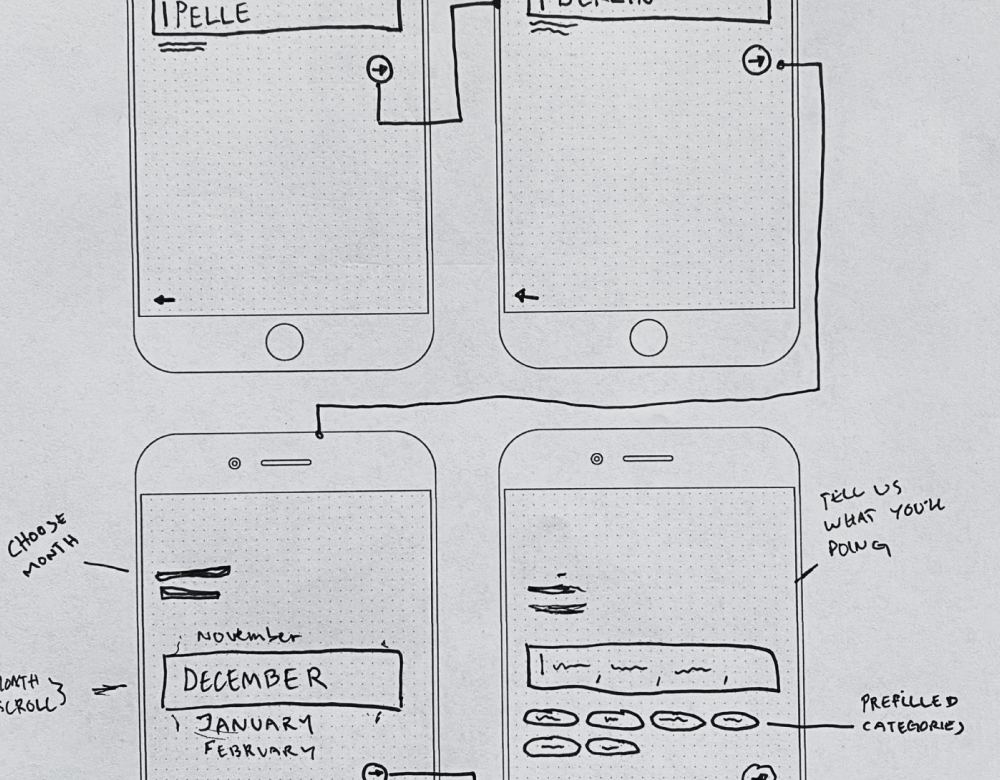 PELLE
BERLIN
CHOOSE
MONTH
November
DECEMBER
JANUARY
FEBRUARY
MONTH
SCROLL
TELL US
WHAT YOU'LL
DOING
PREFILLED
CATEGORIES